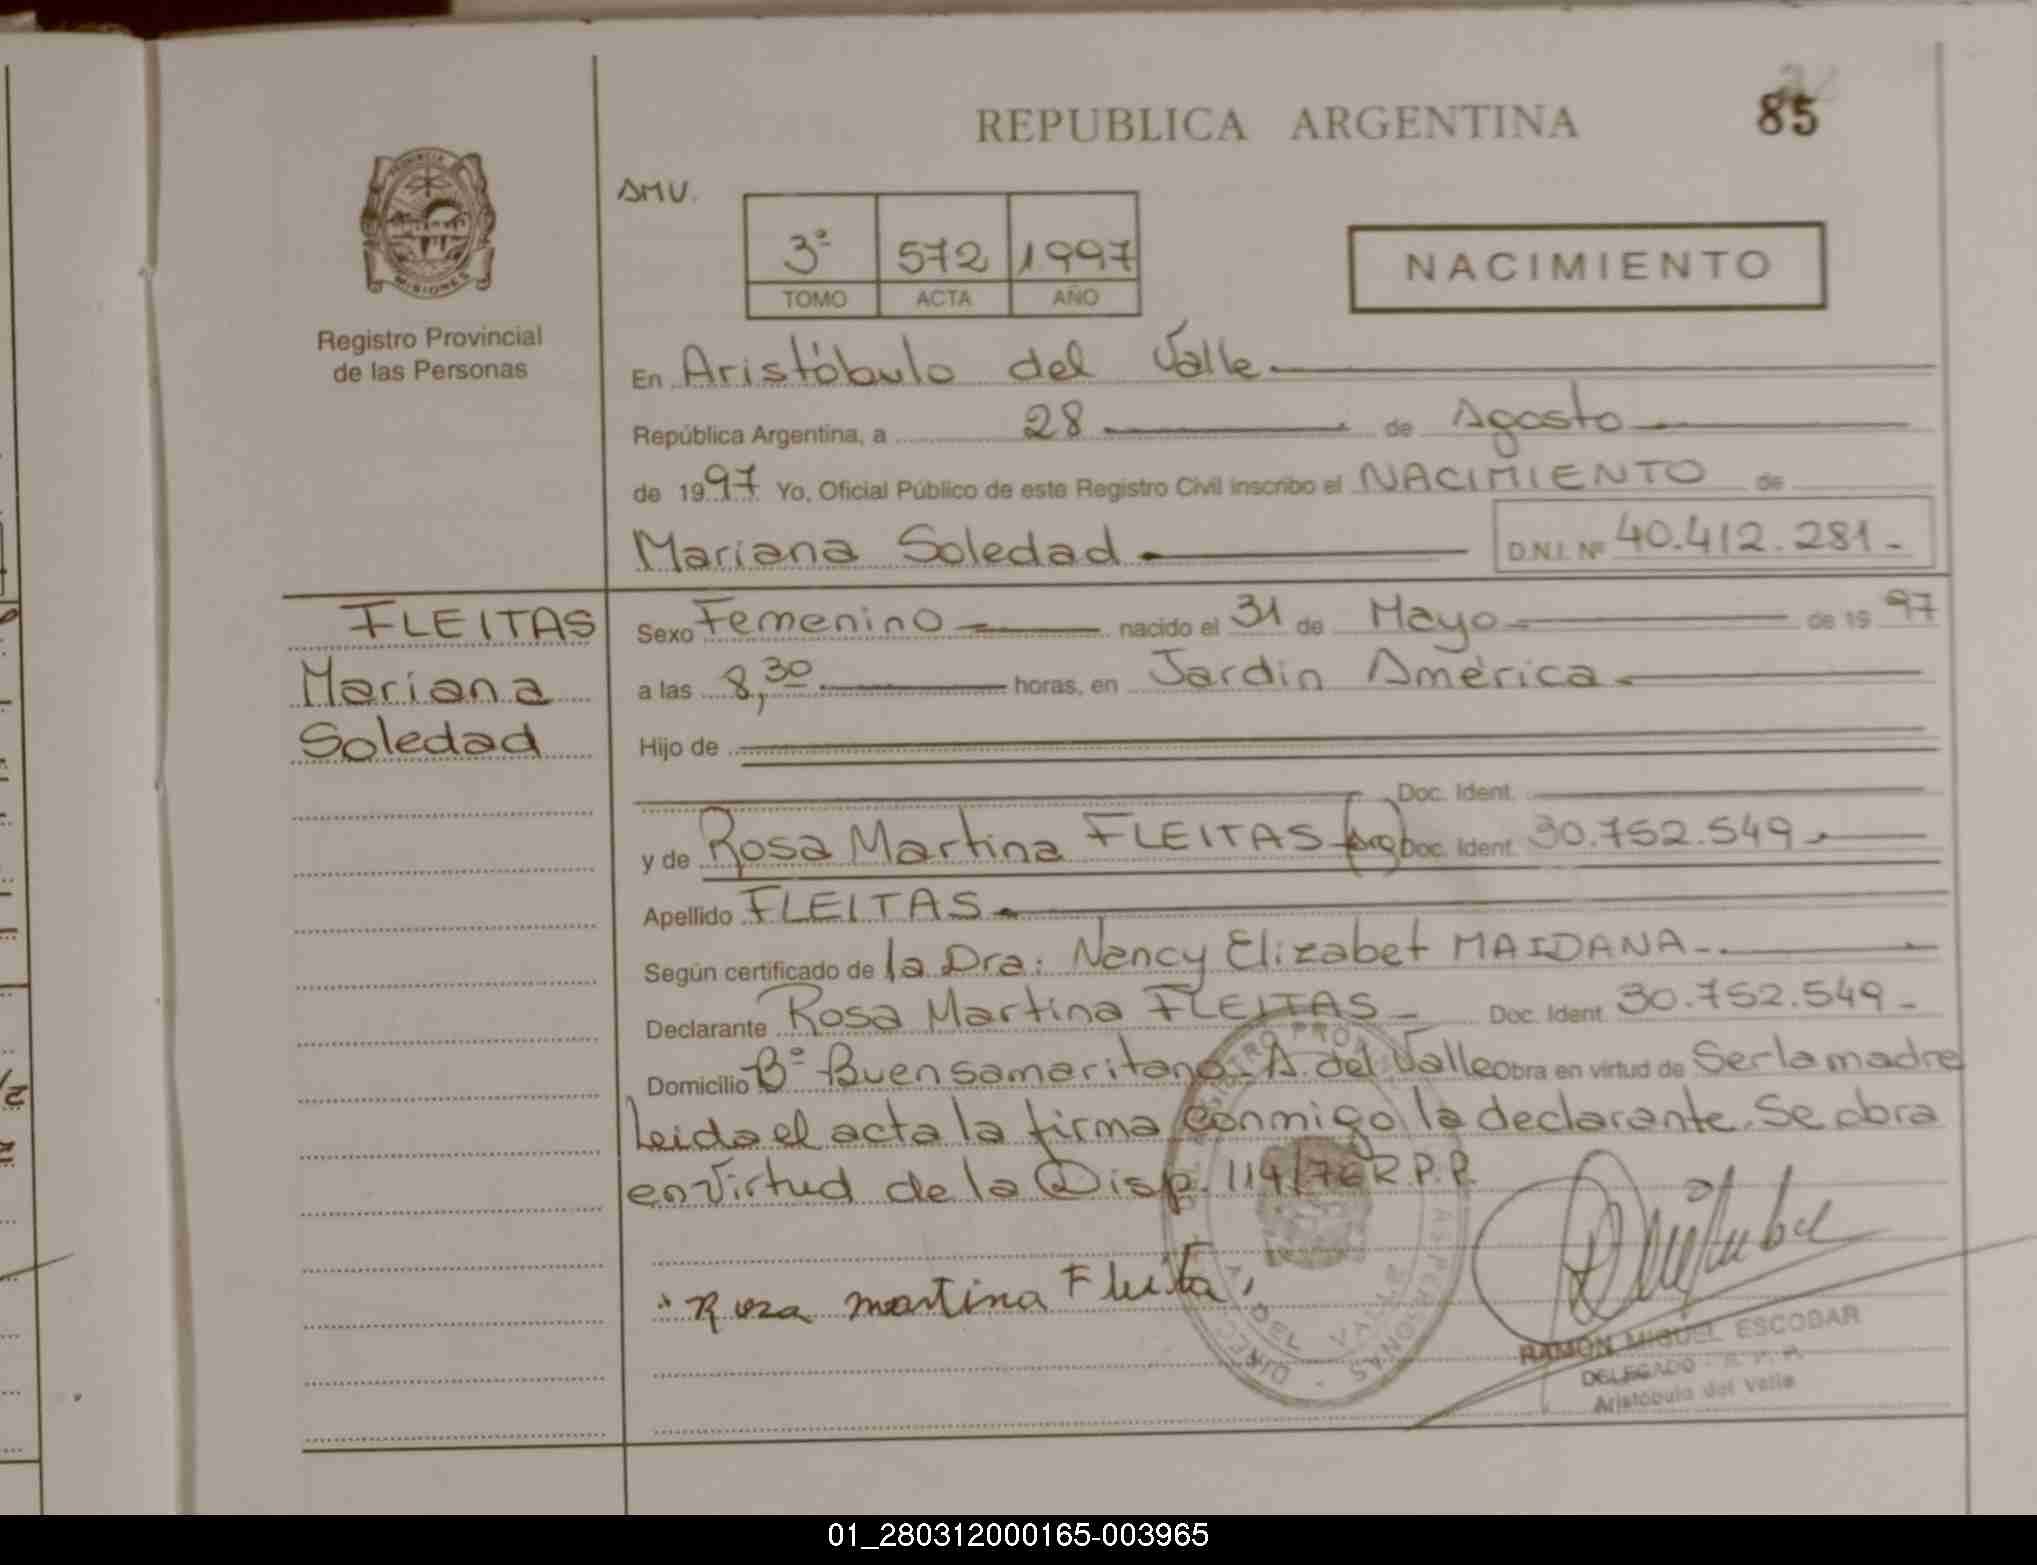 REPUBLICA ARGENTINA
85
PROVINCIA
MISIONES
Registro Provincial
de las Personas
AMV.
3ª 572 1997
TOMO ACTA AÑO
NACIMIENTO
En Aristóbulo del Valle
República Argentina, a 28 de Agosto
de 1997 Yo, Oficial Público de este Registro Civil inscribo el NACIMIENTO de
Mariana Soledad D.N.I. Nº 40.412.281.-
FLEITAS
Mariana
Soledad
Sexo Femenino nacido el 31 de Mayo de 1997
a las 8,30 horas, en Jardin América
Hijo de
Doc. Ident.
y de Rosa Martina FLEITAS (Arg) Doc. Ident. 30.752.549
Apellido FLEITAS
Según certificado de la Dra. Nancy Elizabet MAIDANA
Declarante Rosa Martina FLEITAS Doc. Ident. 30.752.549
Domicilio Bº Buensamaritano A. del Valle Obra en virtud de Ser la madre
Leida el acta la firma conmigo la declarante. Se obra
en virtud de la Disp. 114/76 R.P.P.
Rosa martina Fleita
RAMON MIGUEL ESCOBAR
DELEGADO R. P. P.
Aristóbulo del Valle
01_280312000165-003965